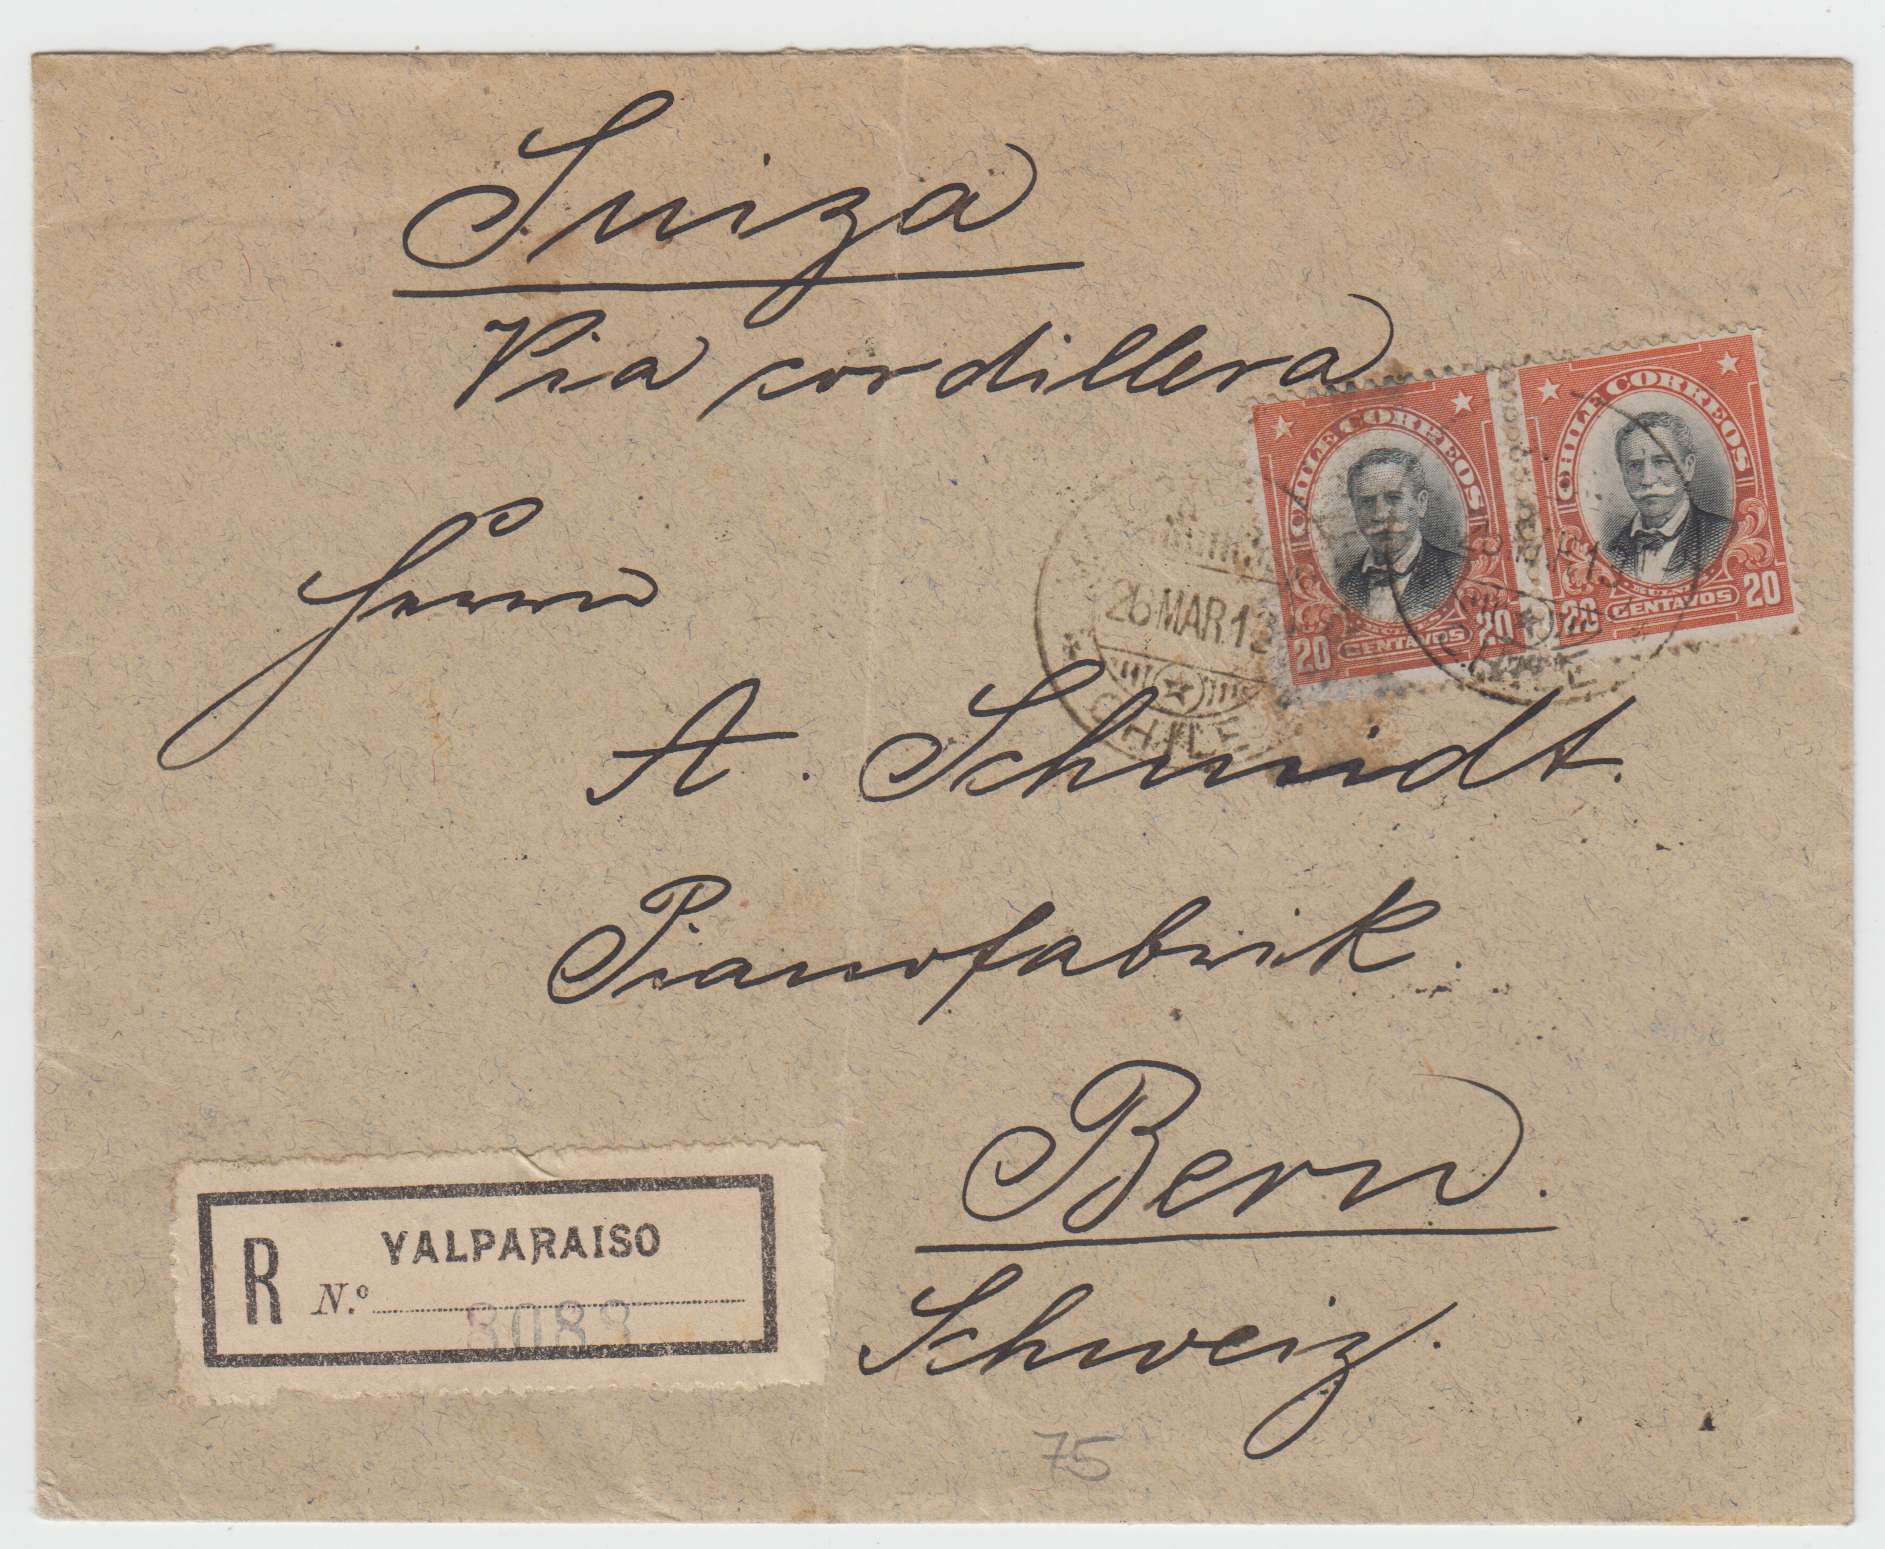 Suiza
Via cordillera
CHILE CORREOS
20 CENTAVOS 20
CHILE CORREOS
20 CENTAVOS 20
26 MAR.13
CHILE
CHILE
Herrn
A. Schmidt.
Pianofabrik.
Bern.
Schweiz.
R VALPARAISO
N.º 8083
75